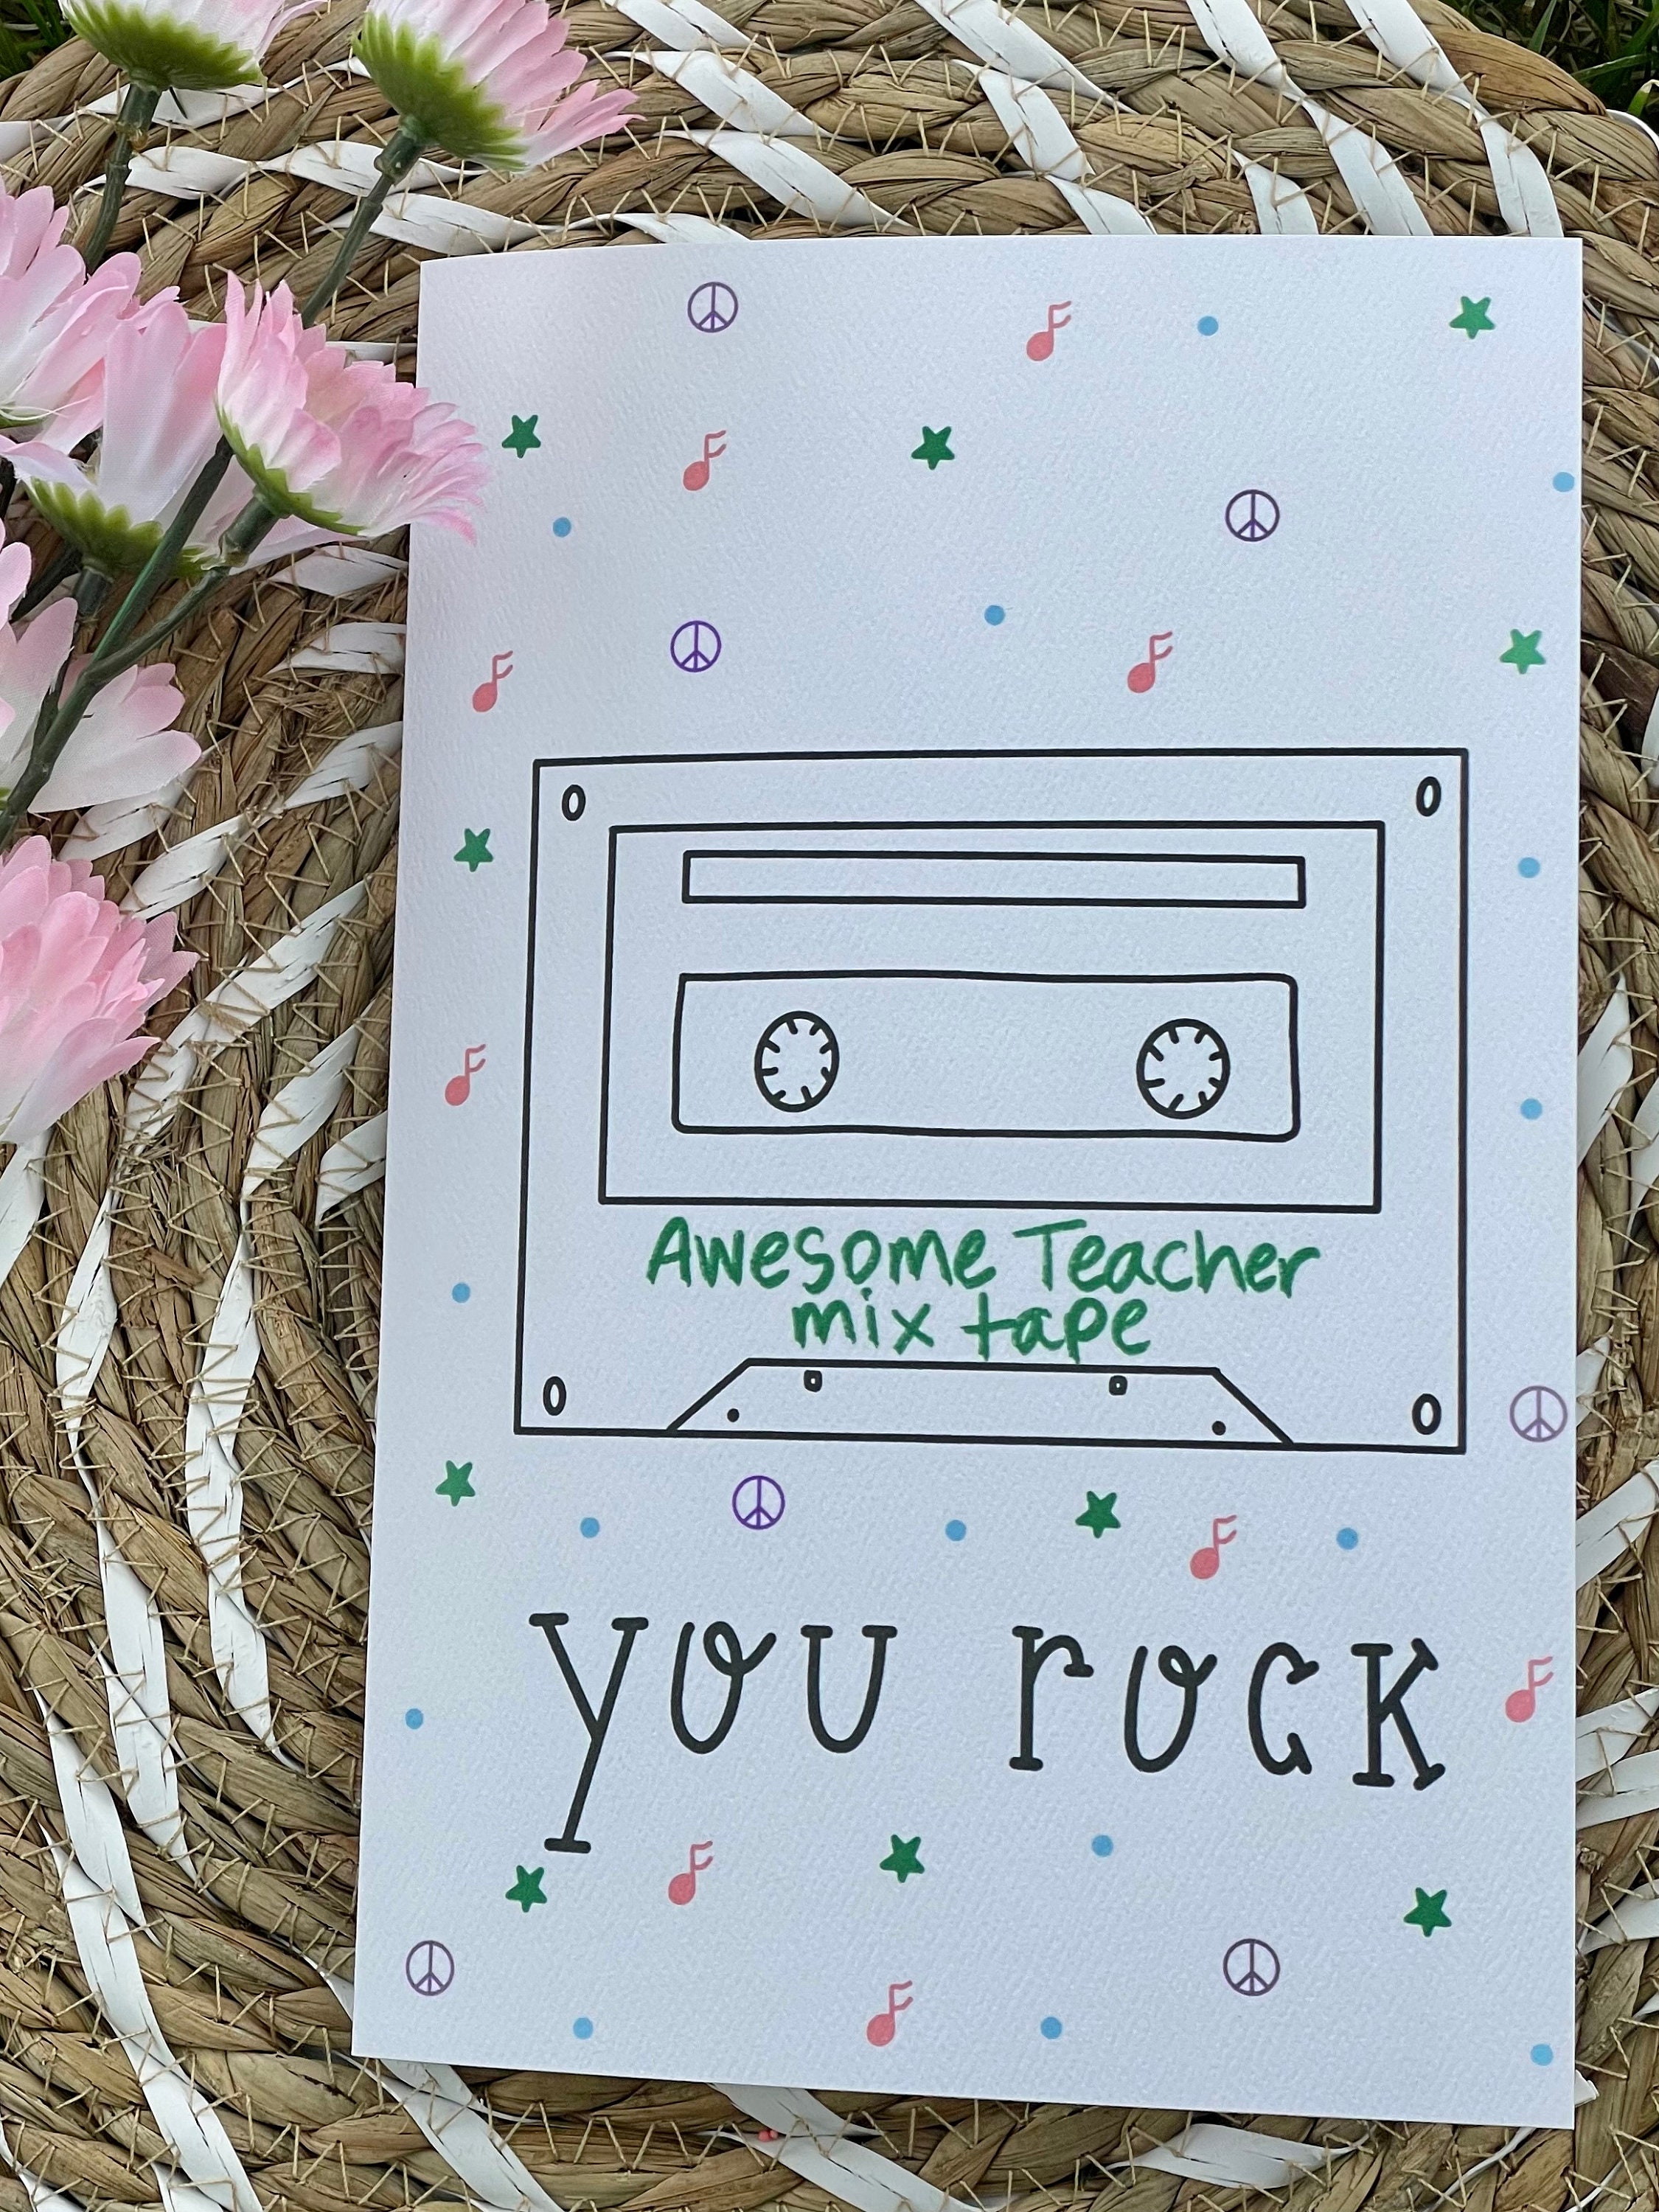 Awesome Teacher
mix tape
you rock